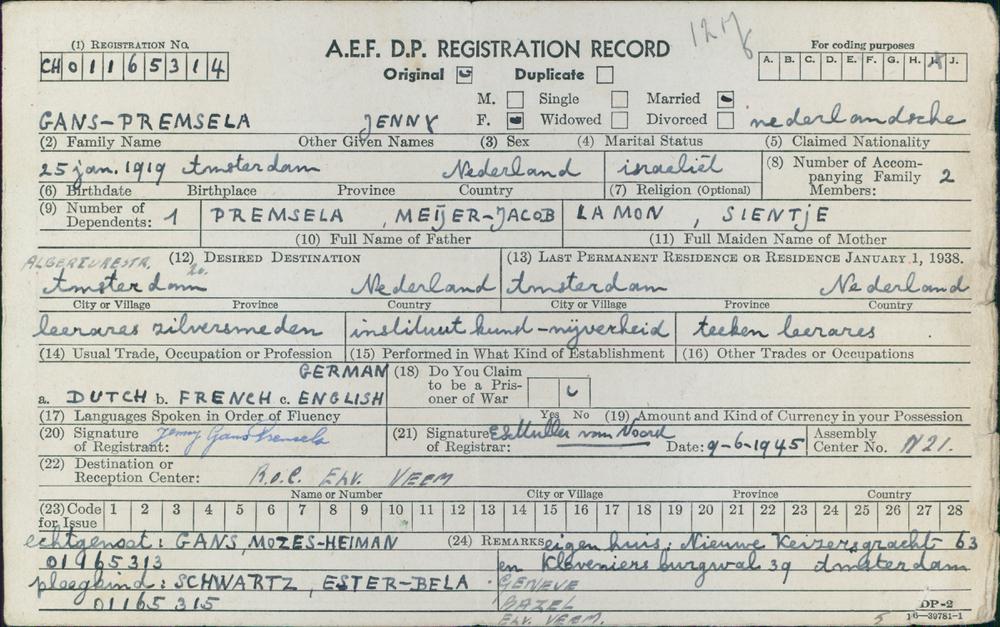 (1) REGISTRATION NO.
CH 0 1 1 6 5 3 1 4
A.E.F. D.P. REGISTRATION RECORD
Original Duplicate
For coding purposes
A. B. C. D. E. F. G. H. J.
M. Single Married
F. Widowed Divorced
GANS-PREMSELA JENNY nederlandsche
(2) Family Name Other Given Names (3) Sex (4) Marital Status (5) Claimed Nationality
25 jan. 1919 Amsterdam Nederland israeliet
(8) Number of Accompanying Family Members: 2
(6) Birthdate Birthplace Province Country (7) Religion (Optional)
(9) Number of Dependents: 1 PREMSELA, MEIJER-JACOB LAMON, SIENTJE
(10) Full Name of Father (11) Full Maiden Name of Mother
(12) DESIRED DESTINATION (13) LAST PERMANENT RESIDENCE OR RESIDENCE JANUARY 1, 1938.
Amsterdam Nederland Amsterdam Nederland
City or Village Province Country City or Village Province Country
leerares zilversmeden instituut kunst-nijverheid teeken leerares
(14) Usual Trade, Occupation or Profession (15) Performed in What Kind of Establishment (16) Other Trades or Occupations
GERMAN
a. DUTCH b. FRENCH c. ENGLISH
(18) Do You Claim to be a Prisoner of War
Yes No
(17) Languages Spoken in Order of Fluency (19) Amount and Kind of Currency in your Possession
(20) Signature of Registrant: Jenny Gans Premsela
(21) Signature of Registrar: Date: 9-6-1945 Assembly Center No. N21.
(22) Destination or Reception Center: R.o.C. EHV. VEEM
Name or Number City or Village Province Country
(23) Code for Issue 1 2 3 4 5 6 7 8 9 10 11 12 13 14 15 16 17 18 19 20 21 22 23 24 25 26 27 28
echtgenoot: GANS, MOZES-HEIMAN (24) REMARKS eigen huis: Nieuwe Keizersgracht 63
01165313 en Kloveniersburgwal 39 Amsterdam
pleegkind: SCHWARTZ, ESTER-BELA GENEVE
01165315 BAZEL
EHV. VEEM.
DP-2
16-39781-1